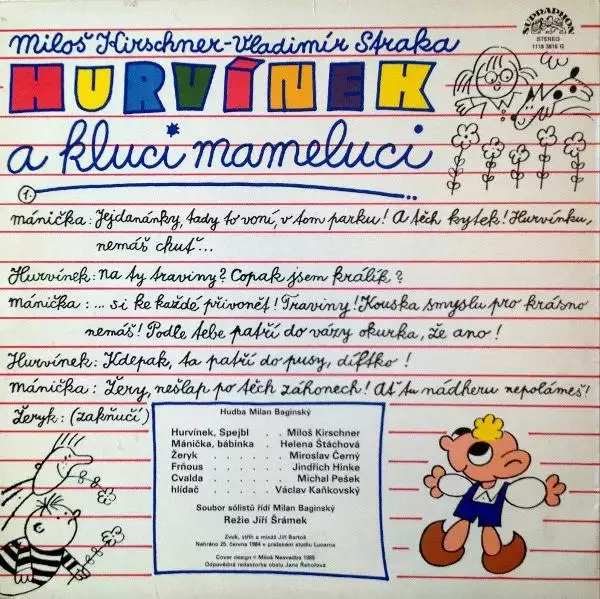 SUPRAPHON
STEREO
1118 3816 G
Miloš Kirschner-Vladimír Straka
HURVÍNEK
a kluci mameluci
1.
Mánička: Jejdanánky, tady to voní, v tom parku! A těch kytek! Hurvínku,
nemáš chuť...
Hurvínek: Na ty traviny? Copak jsem králík?
Mánička: ... si ke každé přivonět! Traviny! Kouska smyslu pro krásno
nemáš! Podle tebe patří do vázy okurka, že ano!
Hurvínek: Kdepak, ta patří do pusy, díftko!
Mánička: Žery, nešlap po těch záhonech! Ať tu nádheru nepolámeš!
Žeryk: (zakňučí)
Hudba Milan Baginský
Hurvínek, Spejbl . Miloš Kirschner
Mánička, bábinka . Helena Štáchová
Žeryk . . . . . Miroslav Černý
Frňous . . . . . Jindřich Hinke
Cvalda . . . . . Michal Pešek
hlídač . . . . . Václav Kaňkovský
Soubor sólistů řídí Milan Baginský
Režie Jiří Šrámek
Zvuk, střih a mixáž Jiří Bartoš
Nahráno 25. června 1984 v pražském studiu Lucerna
Cover design © Miloš Nesvadba 1985
Odpovědná redaktorka obalu Jana Řehořová